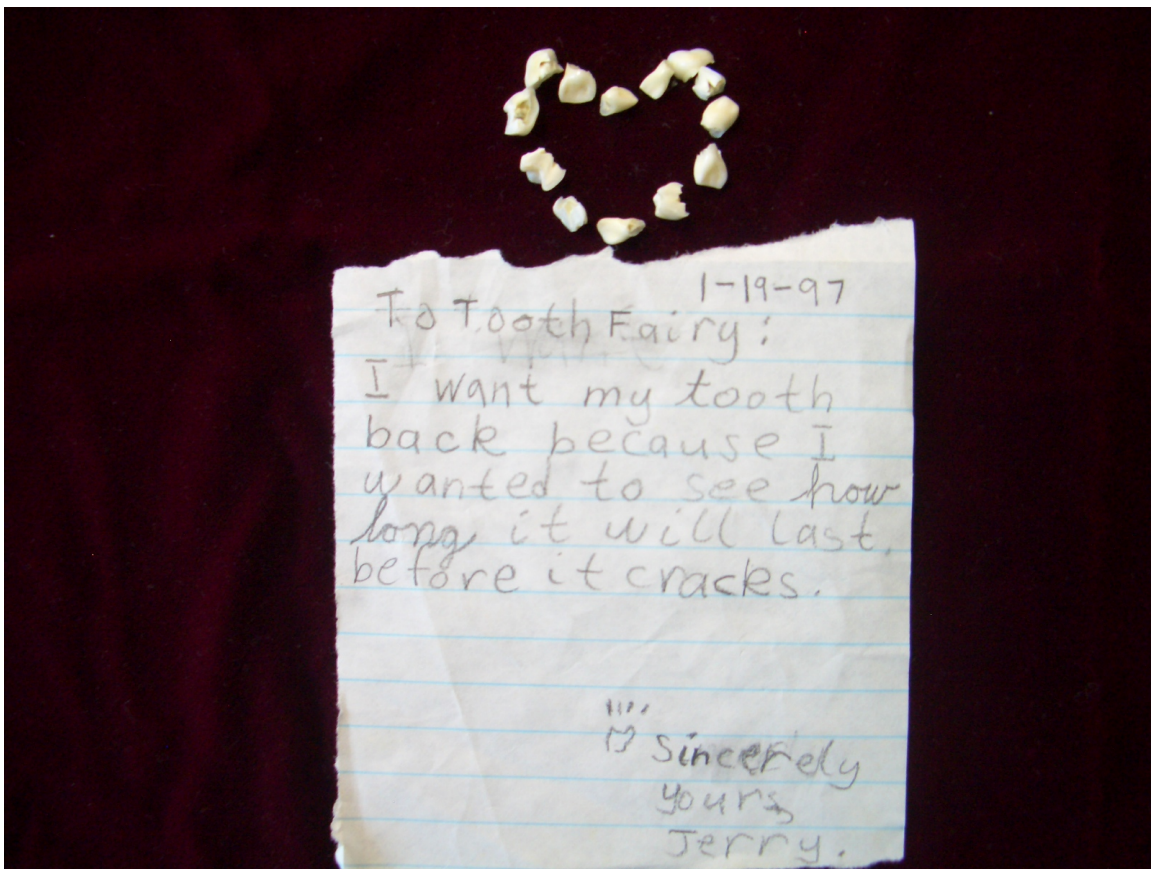 1-19-97
To Tooth Fairy:
I want my tooth
back because I
wanted to see how
long it will last.
before it cracks.
Sincerely
yours,
Jerry.